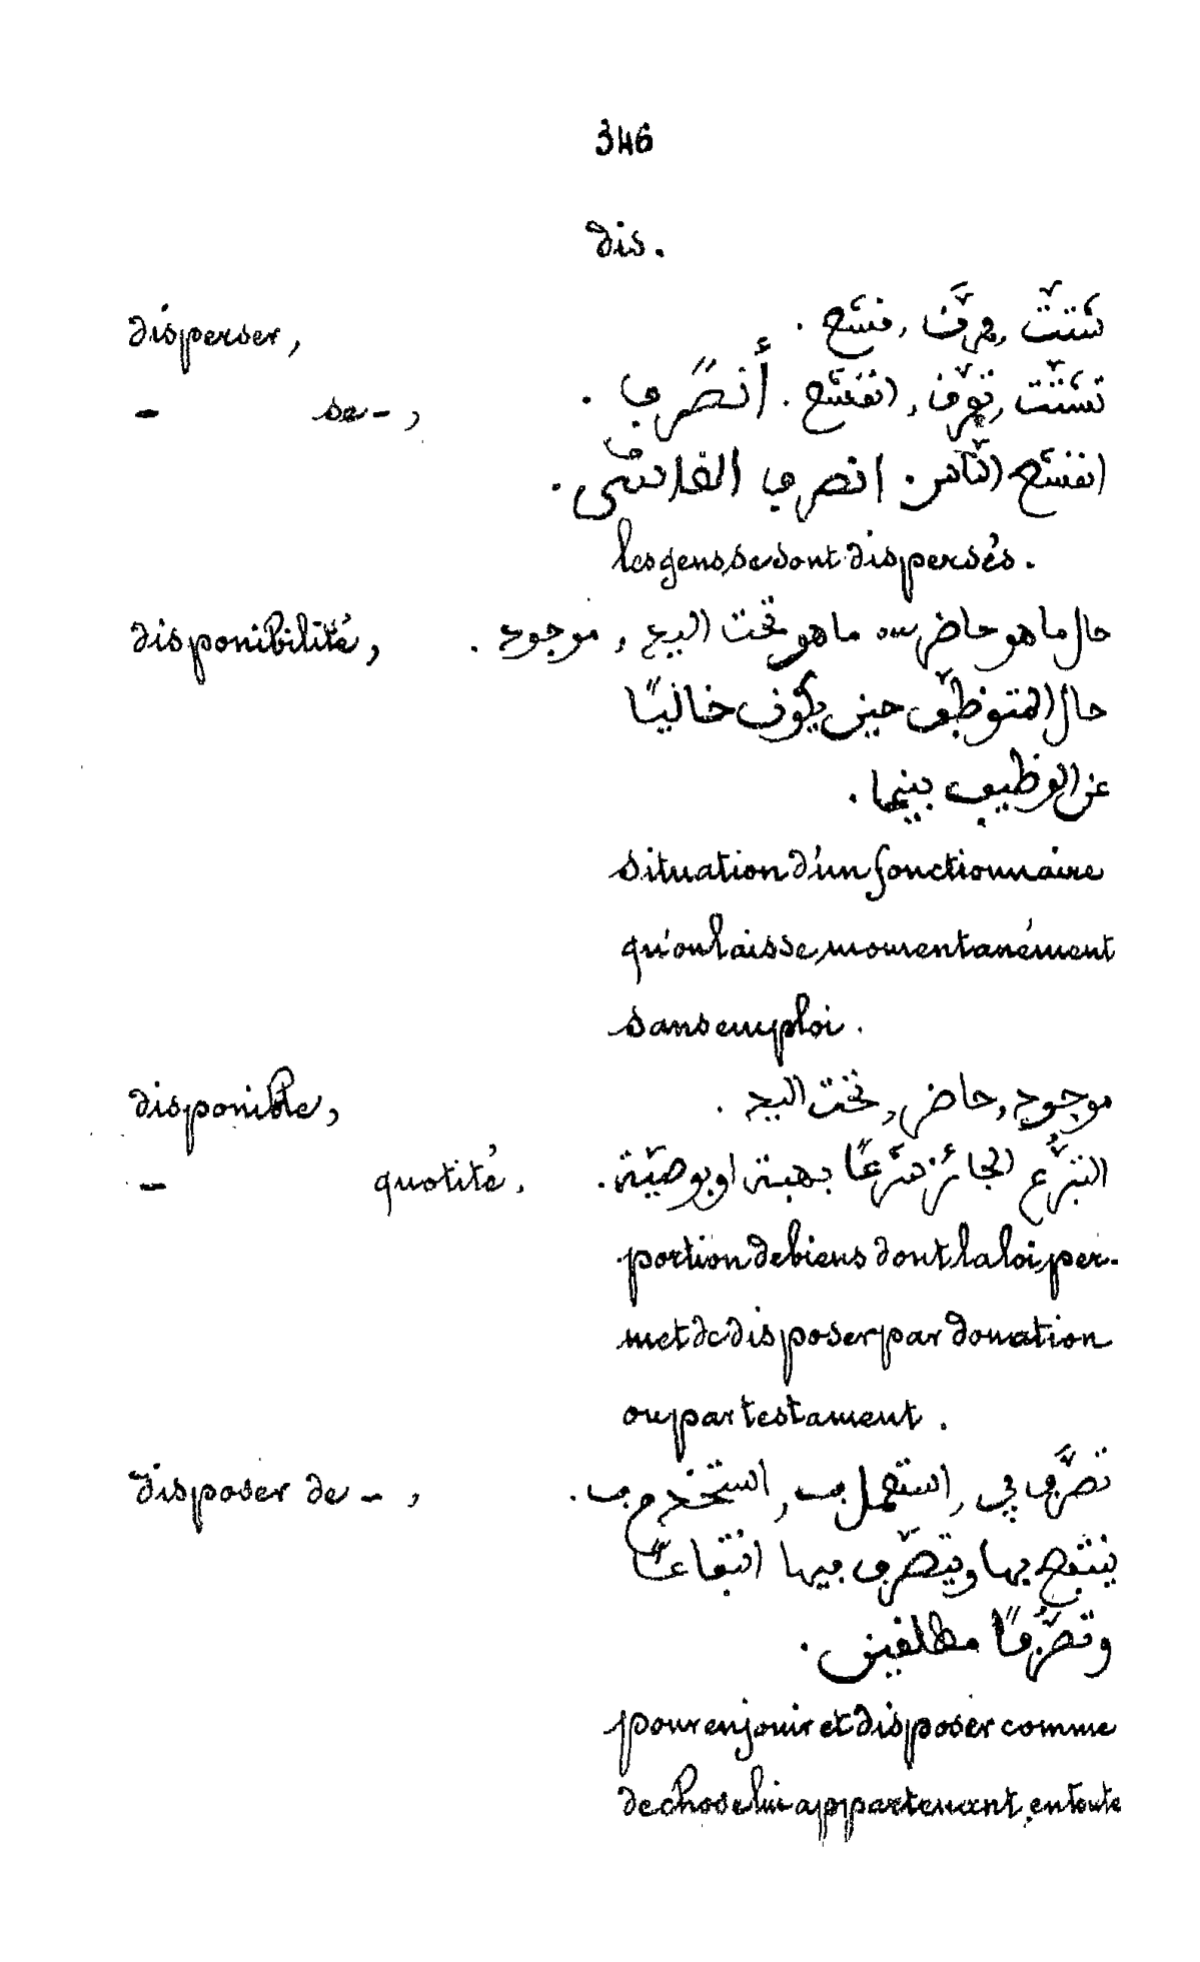 346
dis.
disperser, شَتَّتَ, فرَّق, فشَّح.
- se -, تشتَّت, تفرَّق, انفشَح. أنصَرَف.
انفشَح النّاس. انصرف الغاشي.
les gens se sont dispersés.
disponibilité, حال ما هو حاضر ما هو تحت اليد, موجود.
حال المتوظّف حين يكون خاليًا
عن الوظيف بينما.
situation d'un fonctionnaire
qu'on laisse momentanément
sans emploi.
disponible, موجود, حاضر, تحت اليد.
- quotité. التبرُّع الجائز شرعًا بهبة او بوصيّة.
portion de biens dont la loi per-
met de disposer par donation
ou par testament.
disposer de -, تصرَّف في, استعمل, استخدم.
ينتفع بها ويتصرّف فيها انتفاعًا
وتصرُّفًا مطلقين.
pour en jouir et disposer comme
de chose lui appartenant, en toute